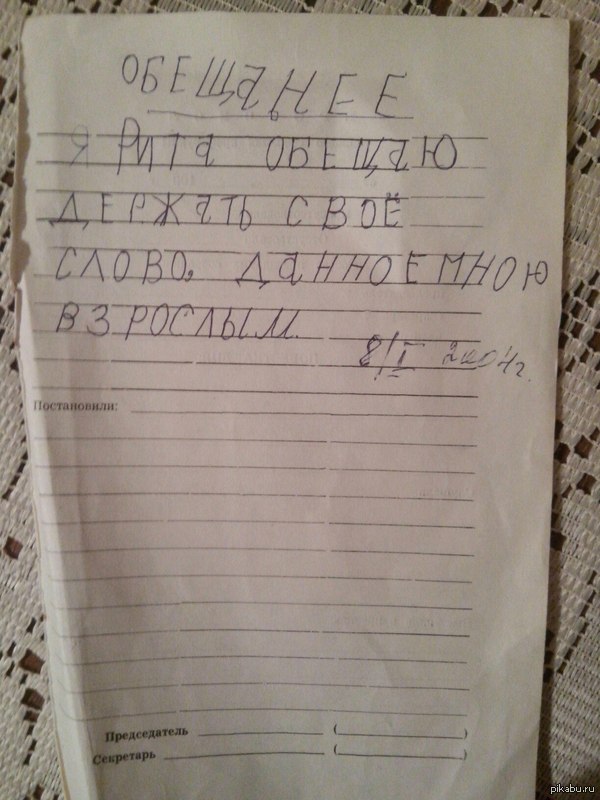 ОБЕЩаНЕЕ
Я РИТа ОБЕЩаЮ
ДЕРЖаТЬ СВОЁ
СЛОВО, ДаННОЕ МНОЮ
ВЗРОСЛЫМ.
8/I 2004г.
Постановили:
Председатель ( )
Секретарь ( )
pikabu.ru